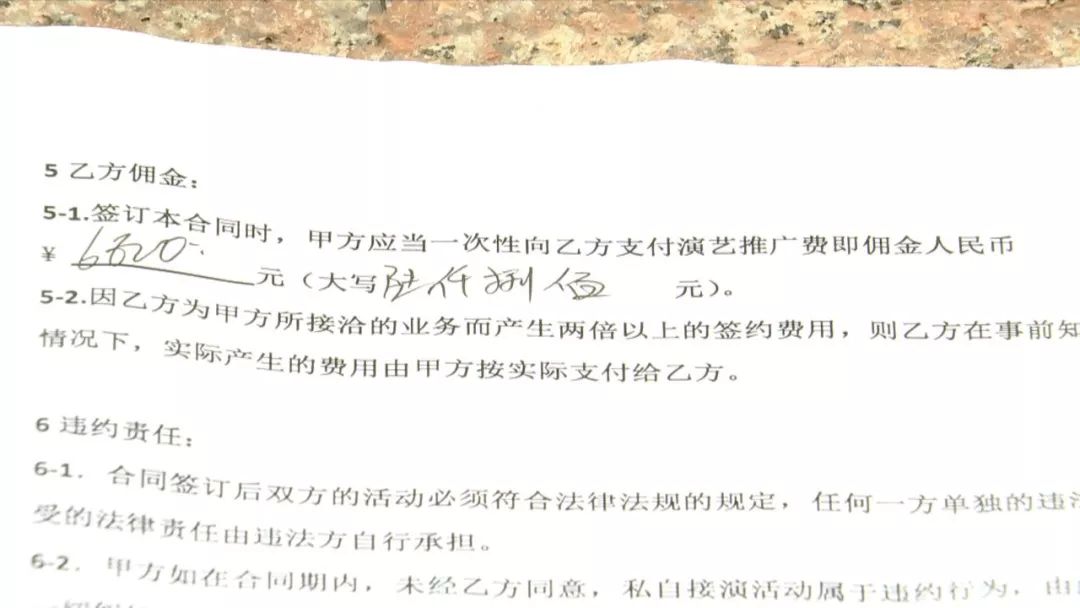 5 乙方佣金：
5-1.签订本合同时，甲方应当一次性向乙方支付演艺推广费即佣金人民币
¥ 6800. 元（大写陆仟捌佰 元）。
5-2.因乙方为甲方所接洽的业务而产生两倍以上的签约费用，则乙方在事前知
情况下，实际产生的费用由甲方按实际支付给乙方。
6 违约责任：
6-1. 合同签订后双方的活动必须符合法律法规的规定，任何一方单独的违法
受的法律责任由违法方自行承担。
6-2. 甲方如在合同期内，未经乙方同意，私自接演活动属于违约行为，由